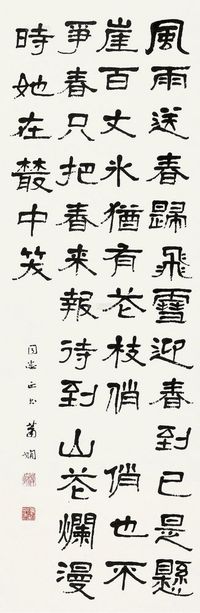 風雨送春歸飛雪迎春到已是懸
崖百丈冰猶有花枝俏俏也不
爭春只把春來報待到山花爛漫
時她在叢中笑
蕭嫻